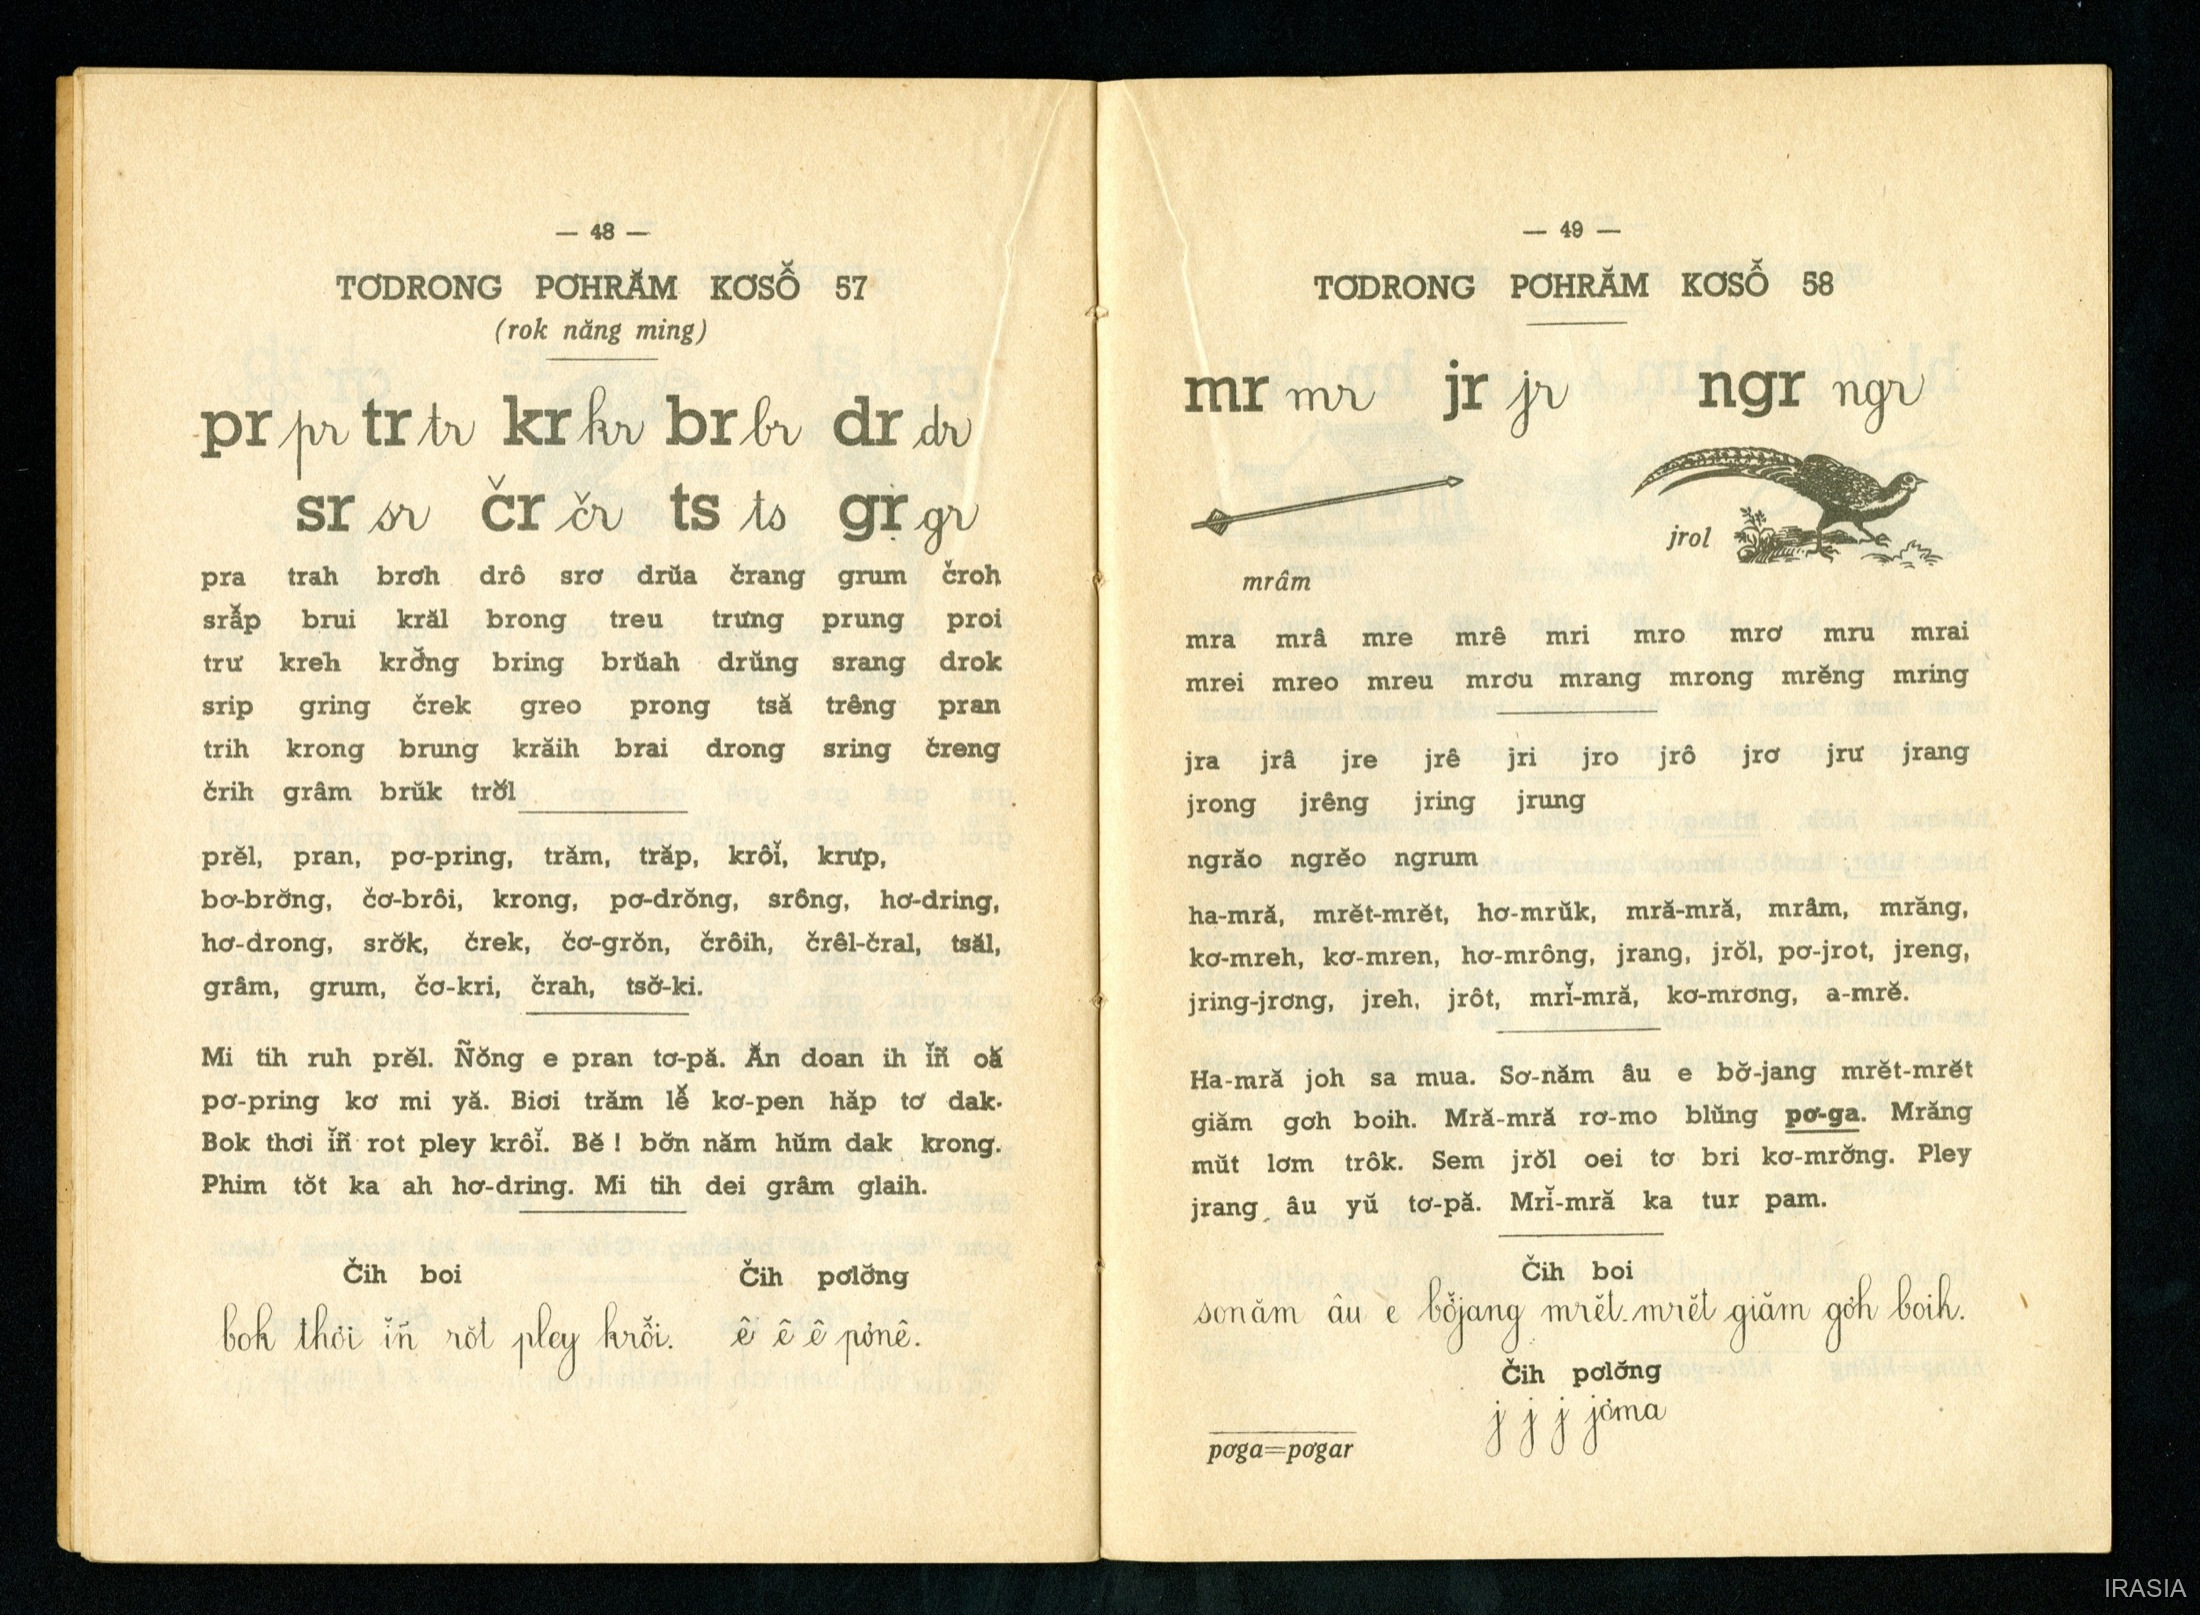 — 48 —
TƠDRONG PƠHRĂM KƠSỐ̆ 57
(rok năng ming)
pr pr tr tr kr kr br br dr dr
sr sr čr čr ts ts gr gr
pra trah brơh drô srơ drŭa črang grum čroh
srắp brui krăl brong treu trưng prung proi
trư kreh krơ̆ng bring brŭah drŭng srang drok
srip gring črek greo prong tsă trêng pran
trih krong brung krăih brai drong sring čreng
črih grâm brŭk trơ̆l
prĕl, pran, pơ-pring, trăm, trăp, krôĭ, krưp,
bơ-brơ̆ng, čơ-brôi, krong, pơ-drŏng, srông, hơ-dring,
hơ-drong, srơ̆k, črek, čơ-grŏn, črôih, črêl-čral, tsăl,
grâm, grum, čơ-kri, črah, tsơ̆-ki.
Mi tih ruh prĕl. Ñŏng e pran tơ-pă. Ăn doan ih ĭñ oă
pơ-pring kơ mi yă. Biơi trăm lê̆ kơ-pen hăp tơ dak.
Bok thơi ĭñ rot pley krôĭ. Bĕ ! bơ̆n năm hŭm dak krong.
Phim tŏt ka ah hơ-dring. Mi tih dei grâm glaih.
Čih boi
Čih pơlơ̆ng
bok thơi ĭñ rŏt pley krô̆i.
ê ê ê pơnê.
— 49 —
TƠDRONG PƠHRĂM KƠSÔ̆ 58
mr mr jr jr ngr ngr
jrol
mrâm
mra mrâ mre mrê mri mro mrơ mru mrai
mrei mreo mreu mrơu mrang mrong mrĕng mring
jra jrâ jre jrê jri jro jrô jrơ jrư jrang
jrong jrêng jring jrung
ngrăo ngrĕo ngrum
ha-mră, mrĕt-mrĕt, hơ-mrŭk, mră-mră, mrâm, mrăng,
kơ-mreh, kơ-mren, hơ-mrông, jrang, jrŏl, pơ-jrot, jreng,
jring-jrơng, jreh, jrôt, mrĭ-mră, kơ-mrơng, a-mrĕ.
Ha-mră joh sa mua. Sơ-năm âu e bơ̆-jang mrĕt-mrĕt
giăm gơh boih. Mră-mră rơ-mo blŭng pơ-ga. Mrăng
mŭt lơm trôk. Sem jrŏl oei tơ bri kơ-mrơ̆ng. Pley
jrang âu yŭ tơ-pă. Mrĭ-mră ka tur pam.
Čih boi
sơnăm âu e bơ̆jang mrĕt-mrĕt giăm gơh boih.
Čih pơlơ̆ng
j j j jơma
pơga=pơgar
IRASIA